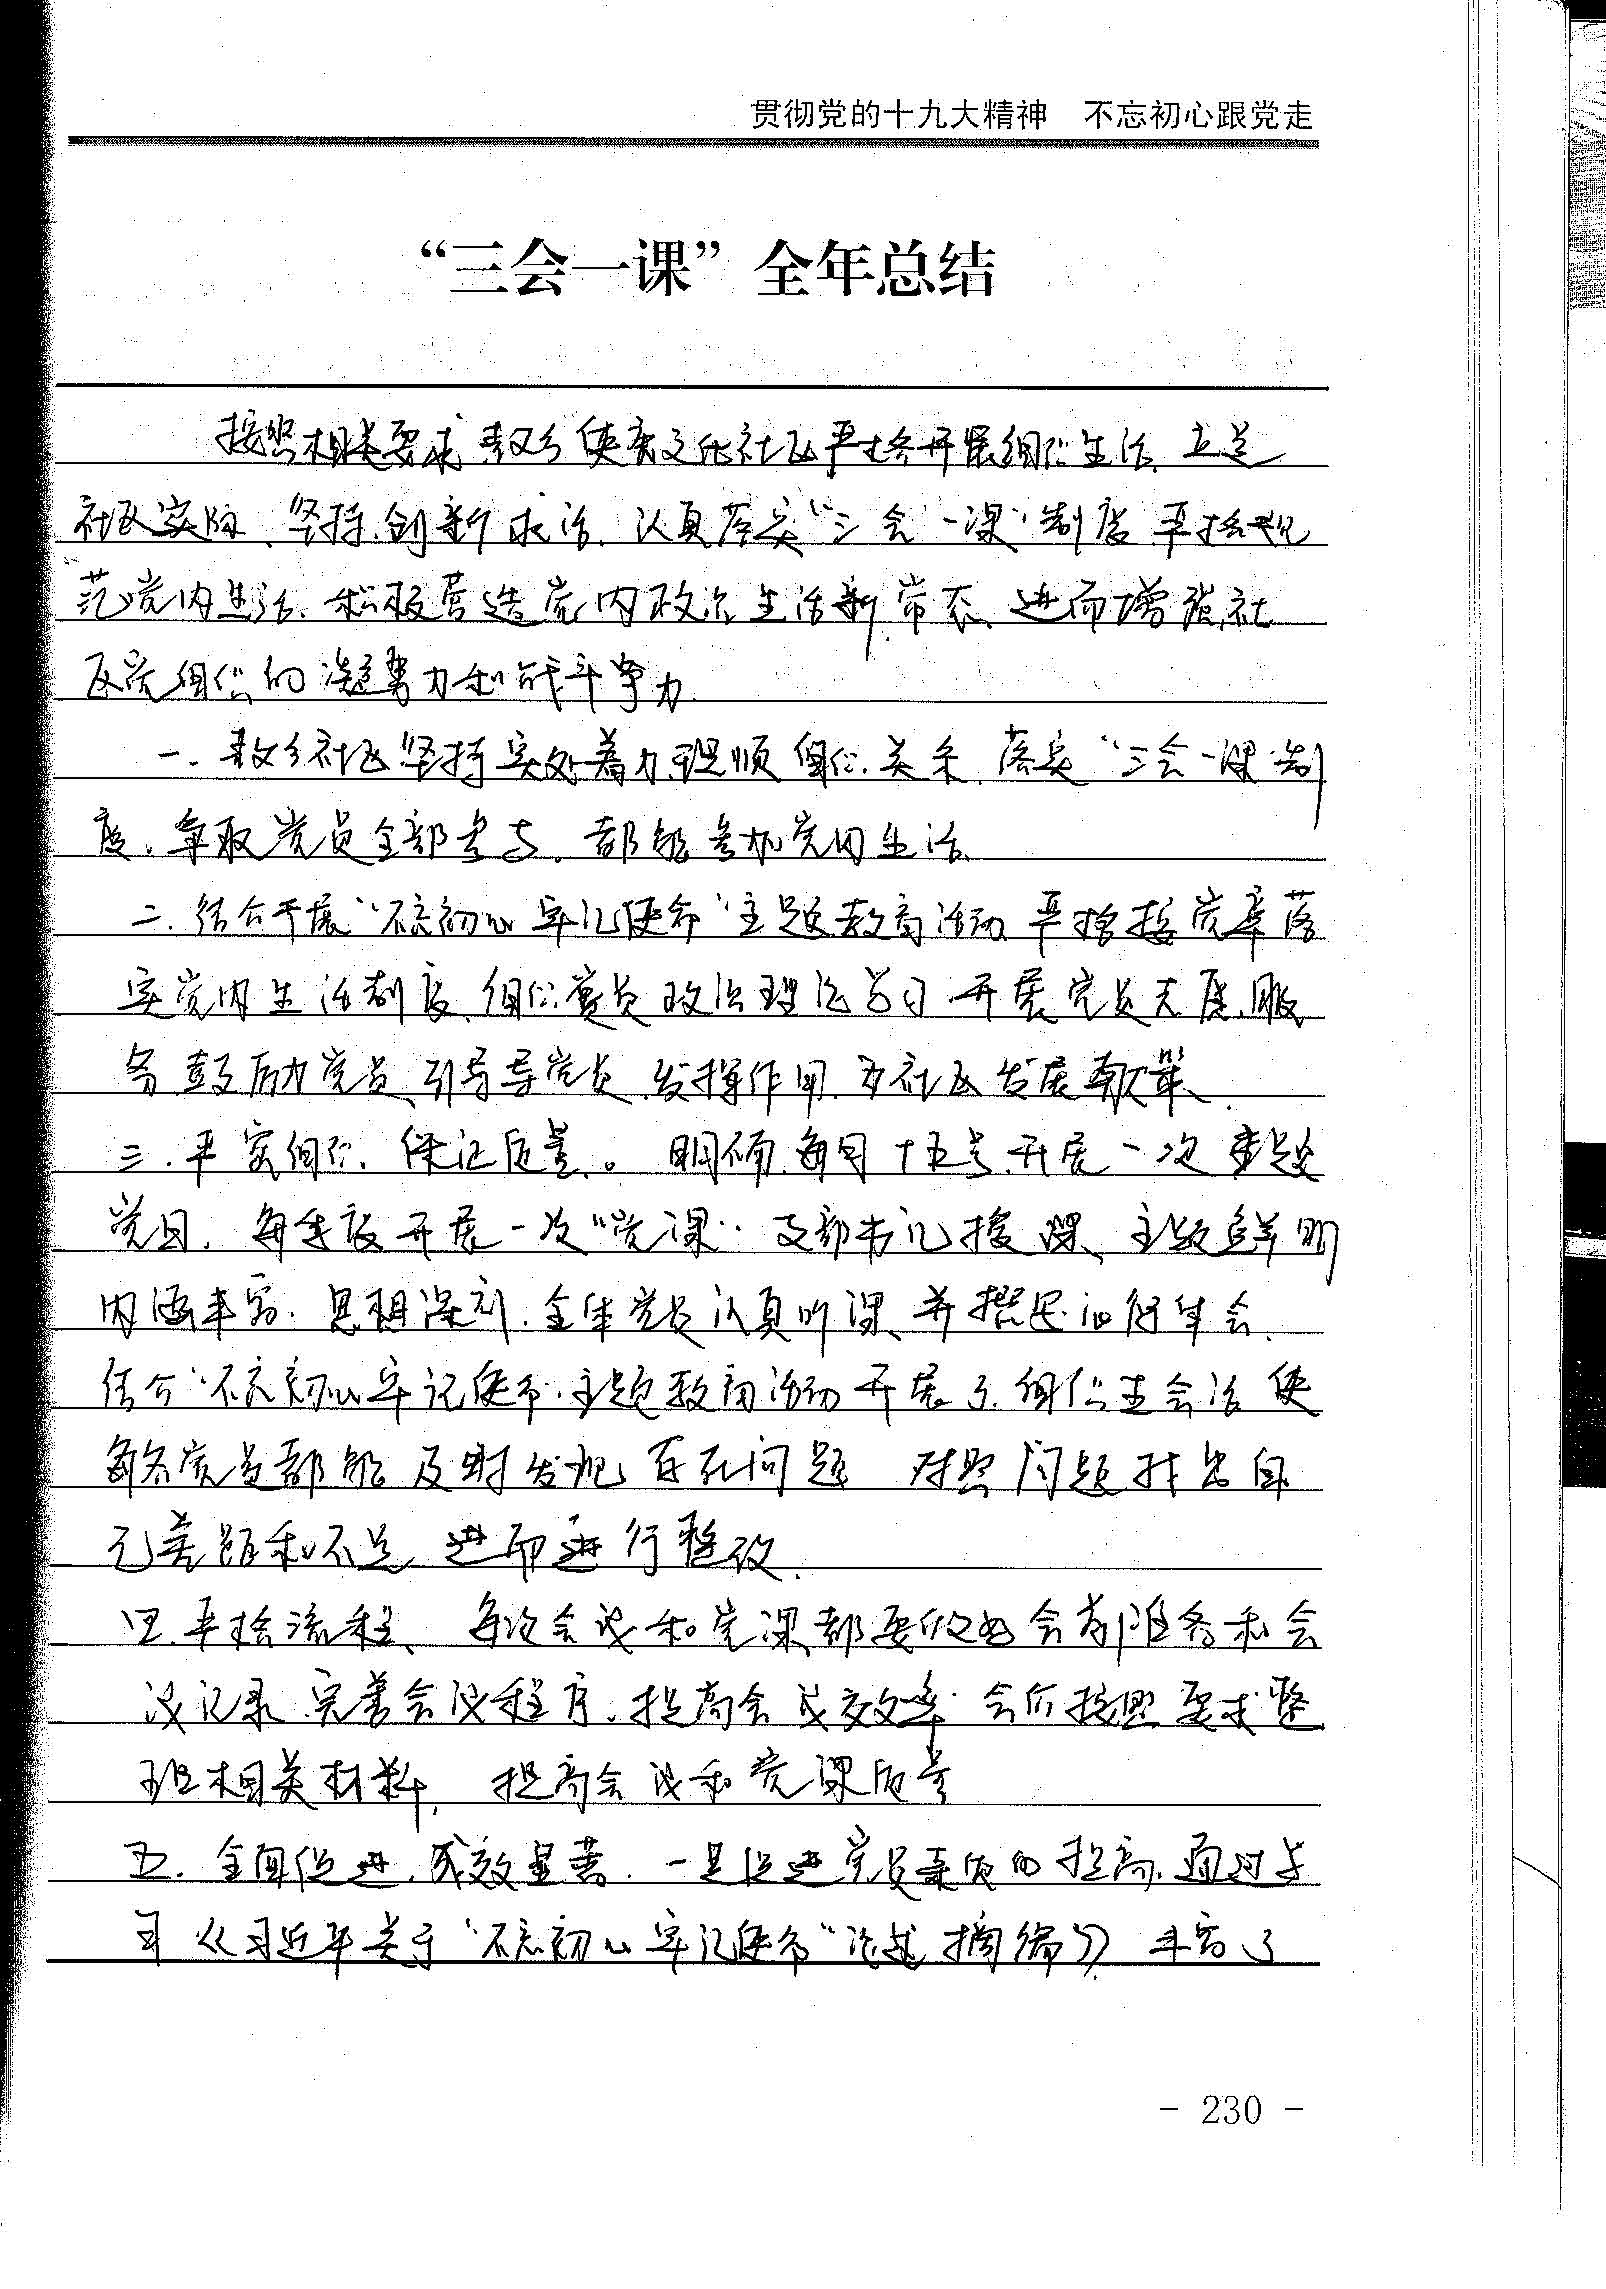 贯彻党的十九大精神 不忘初心跟党走
“三会一课”全年总结
按照相关要求 敦乡健康文化社区严格开展组织生活、立足
社区实际、坚持创新求活、认真落实“三会一课”制度 严格规
范党内生活、积极营造党内政治生活新常态、进而增强社
区党组织的凝聚力和战斗争力
一、敦乡社区坚持实处着力、理顺组织关系、落实“三会一课”制
度、争取党员全部参与、都能参加党内生活、
二、结合开展“不忘初心 牢记使命”主题教育活动 严格按党章落
实党内生活制度、组织党员政治理论学习、开展党员志愿服
务 鼓励党员、引导导党员 发挥作用、为社区发展献
三、严密组织、保证质量。明确每月十五号开展一次主题
党日、每季度开展一次“党课”、支部书记授课、主题鲜明
内涵丰富、思想深刻、全体党员认真听课、并撰写心得体会、
结合“不忘初心 牢记使命”主题教育活动开展了组织生会活 使
每名党员都能及时发现存在问题 对照问题找出自
己差距和不足、进而进行整改、
四、严格流程、每次会议和党课都要做好会前准备和会
议记录、完善会议程序、提高会议效率 会后按照要求整
理相关材料、提高会议和党课质量
五、全面促进、成效显著、一是促进党员素质的提高、通过学
习《习近平关于“不忘初心 牢记使命”论述摘编》、丰富了
- 230 -